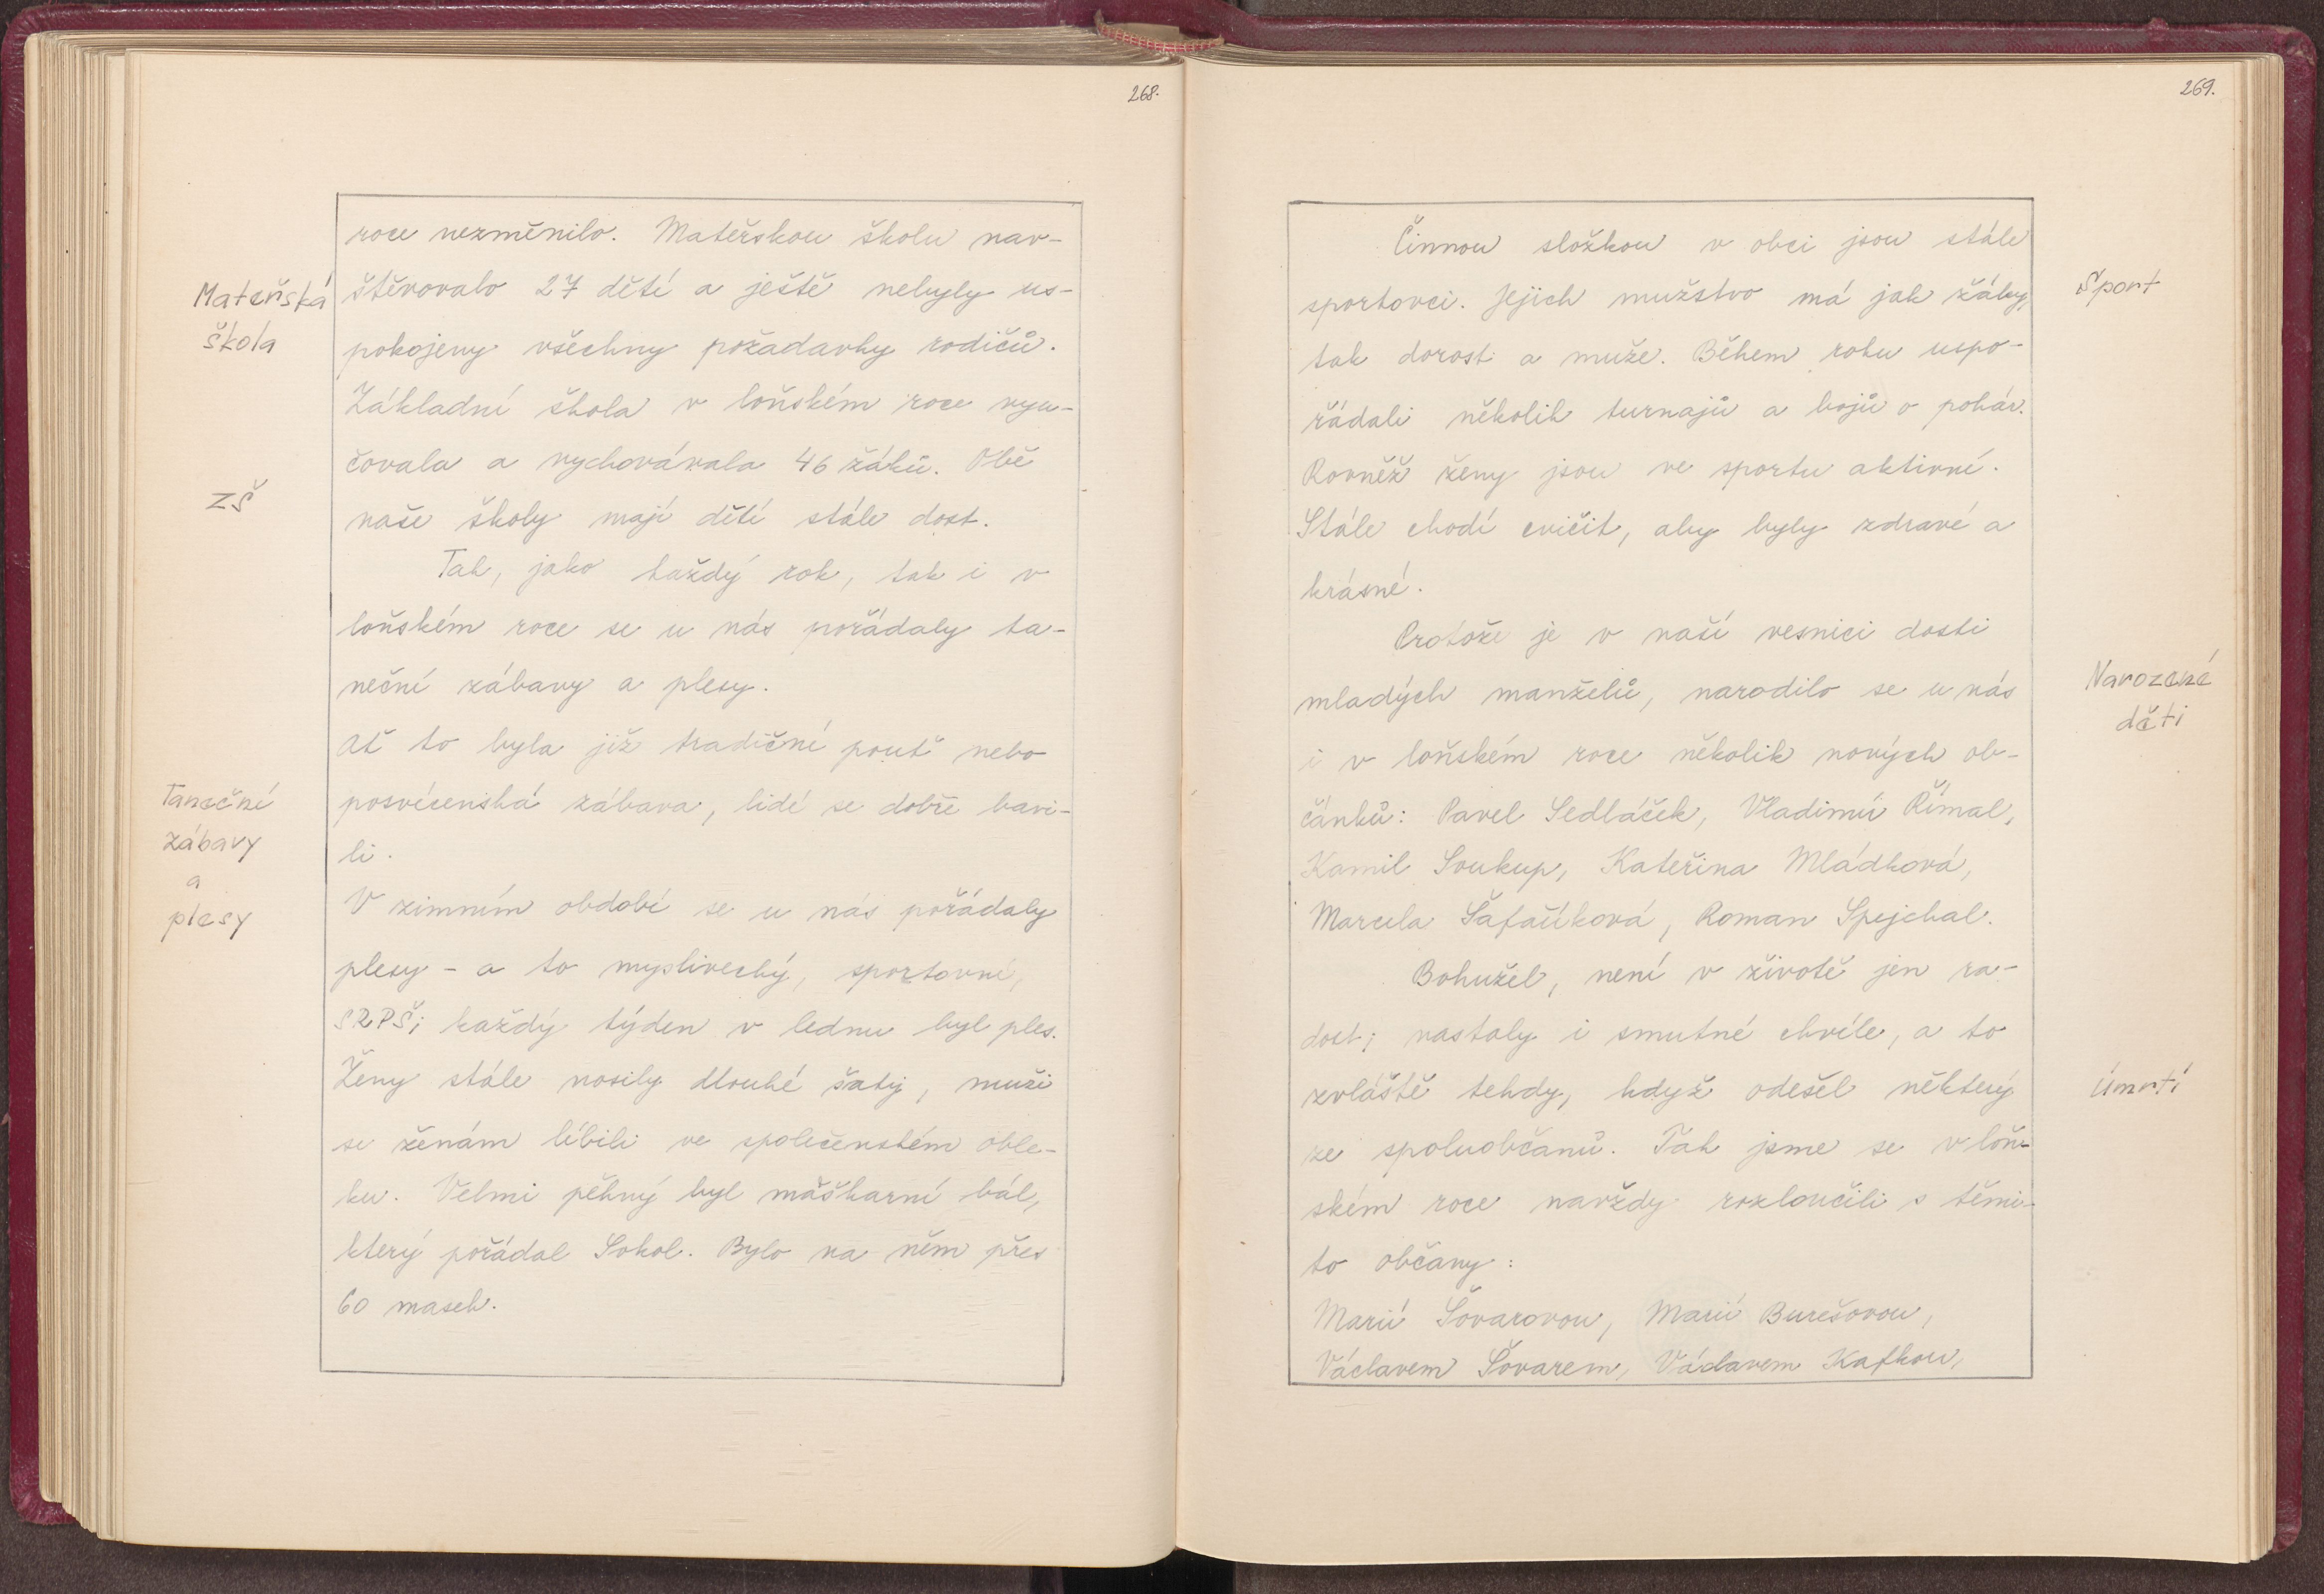 268.
roce nezměnilo. Mateřskou školu nav-
Mateřská
škola
štěvovalo 27 dětí a ještě nebyly us-
pokojeny všechny požadavky rodičů.
Základní škola v loňském roce vyu-
čovala a vychovávala 46 žáků. Obě
ZŠ
naše školy mají dětí stále dost.
Tak, jako každý rok, tak i v
loňském roce se u nás pořádaly ta-
neční zábavy a plesy.
Ať to byla již tradiční pouť nebo
Taneční
zábavy
a
plesy
posvícenská zábava, lidé se dobře bavi-
li.
V zimním období se u nás pořádaly
plesy - a to myslivecký, sportovní,
SRPŠ; každý týden v lednu byl ples.
Ženy stále nosily dlouhé šaty, muži
se ženám líbili ve společenském oble-
ku. Velmi pěkný byl maškarní bál,
který pořádal Sokol. Bylo na něm přes
60 masek.
269.
Činnou složkou v obci jsou stále
Sport
sportovci. Jejich mužstvo má jak žáky,
tak dorost a muže. Během roku uspo-
řádali několik turnajů a bojů o pohár.
Rovněž ženy jsou ve sportu aktivní.
Stále chodí cvičit, aby byly zdravé a
krásné.
Protože je v naší vesnici dosti
Narozené
děti
mladých manželů, narodilo se u nás
i v loňském roce několik nových ob-
čánků: Pavel Sedláček, Vladimír Římal,
Kamil Soukup, Kateřina Mládková,
Marcela Šafaříková, Roman Spejchal.
Bohužel, není v životě jen ra-
dost; nastaly i smutné chvíle, a to
Úmrtí
zvláště tehdy, když odešel některý
ze spoluobčanů. Tak jsme se v loň-
ském roce navždy rozloučili s těmi-
to občany:
Marií Šovarovou, Marií Burešovou,
Václavem Šovarem, Václavem Kafkou,